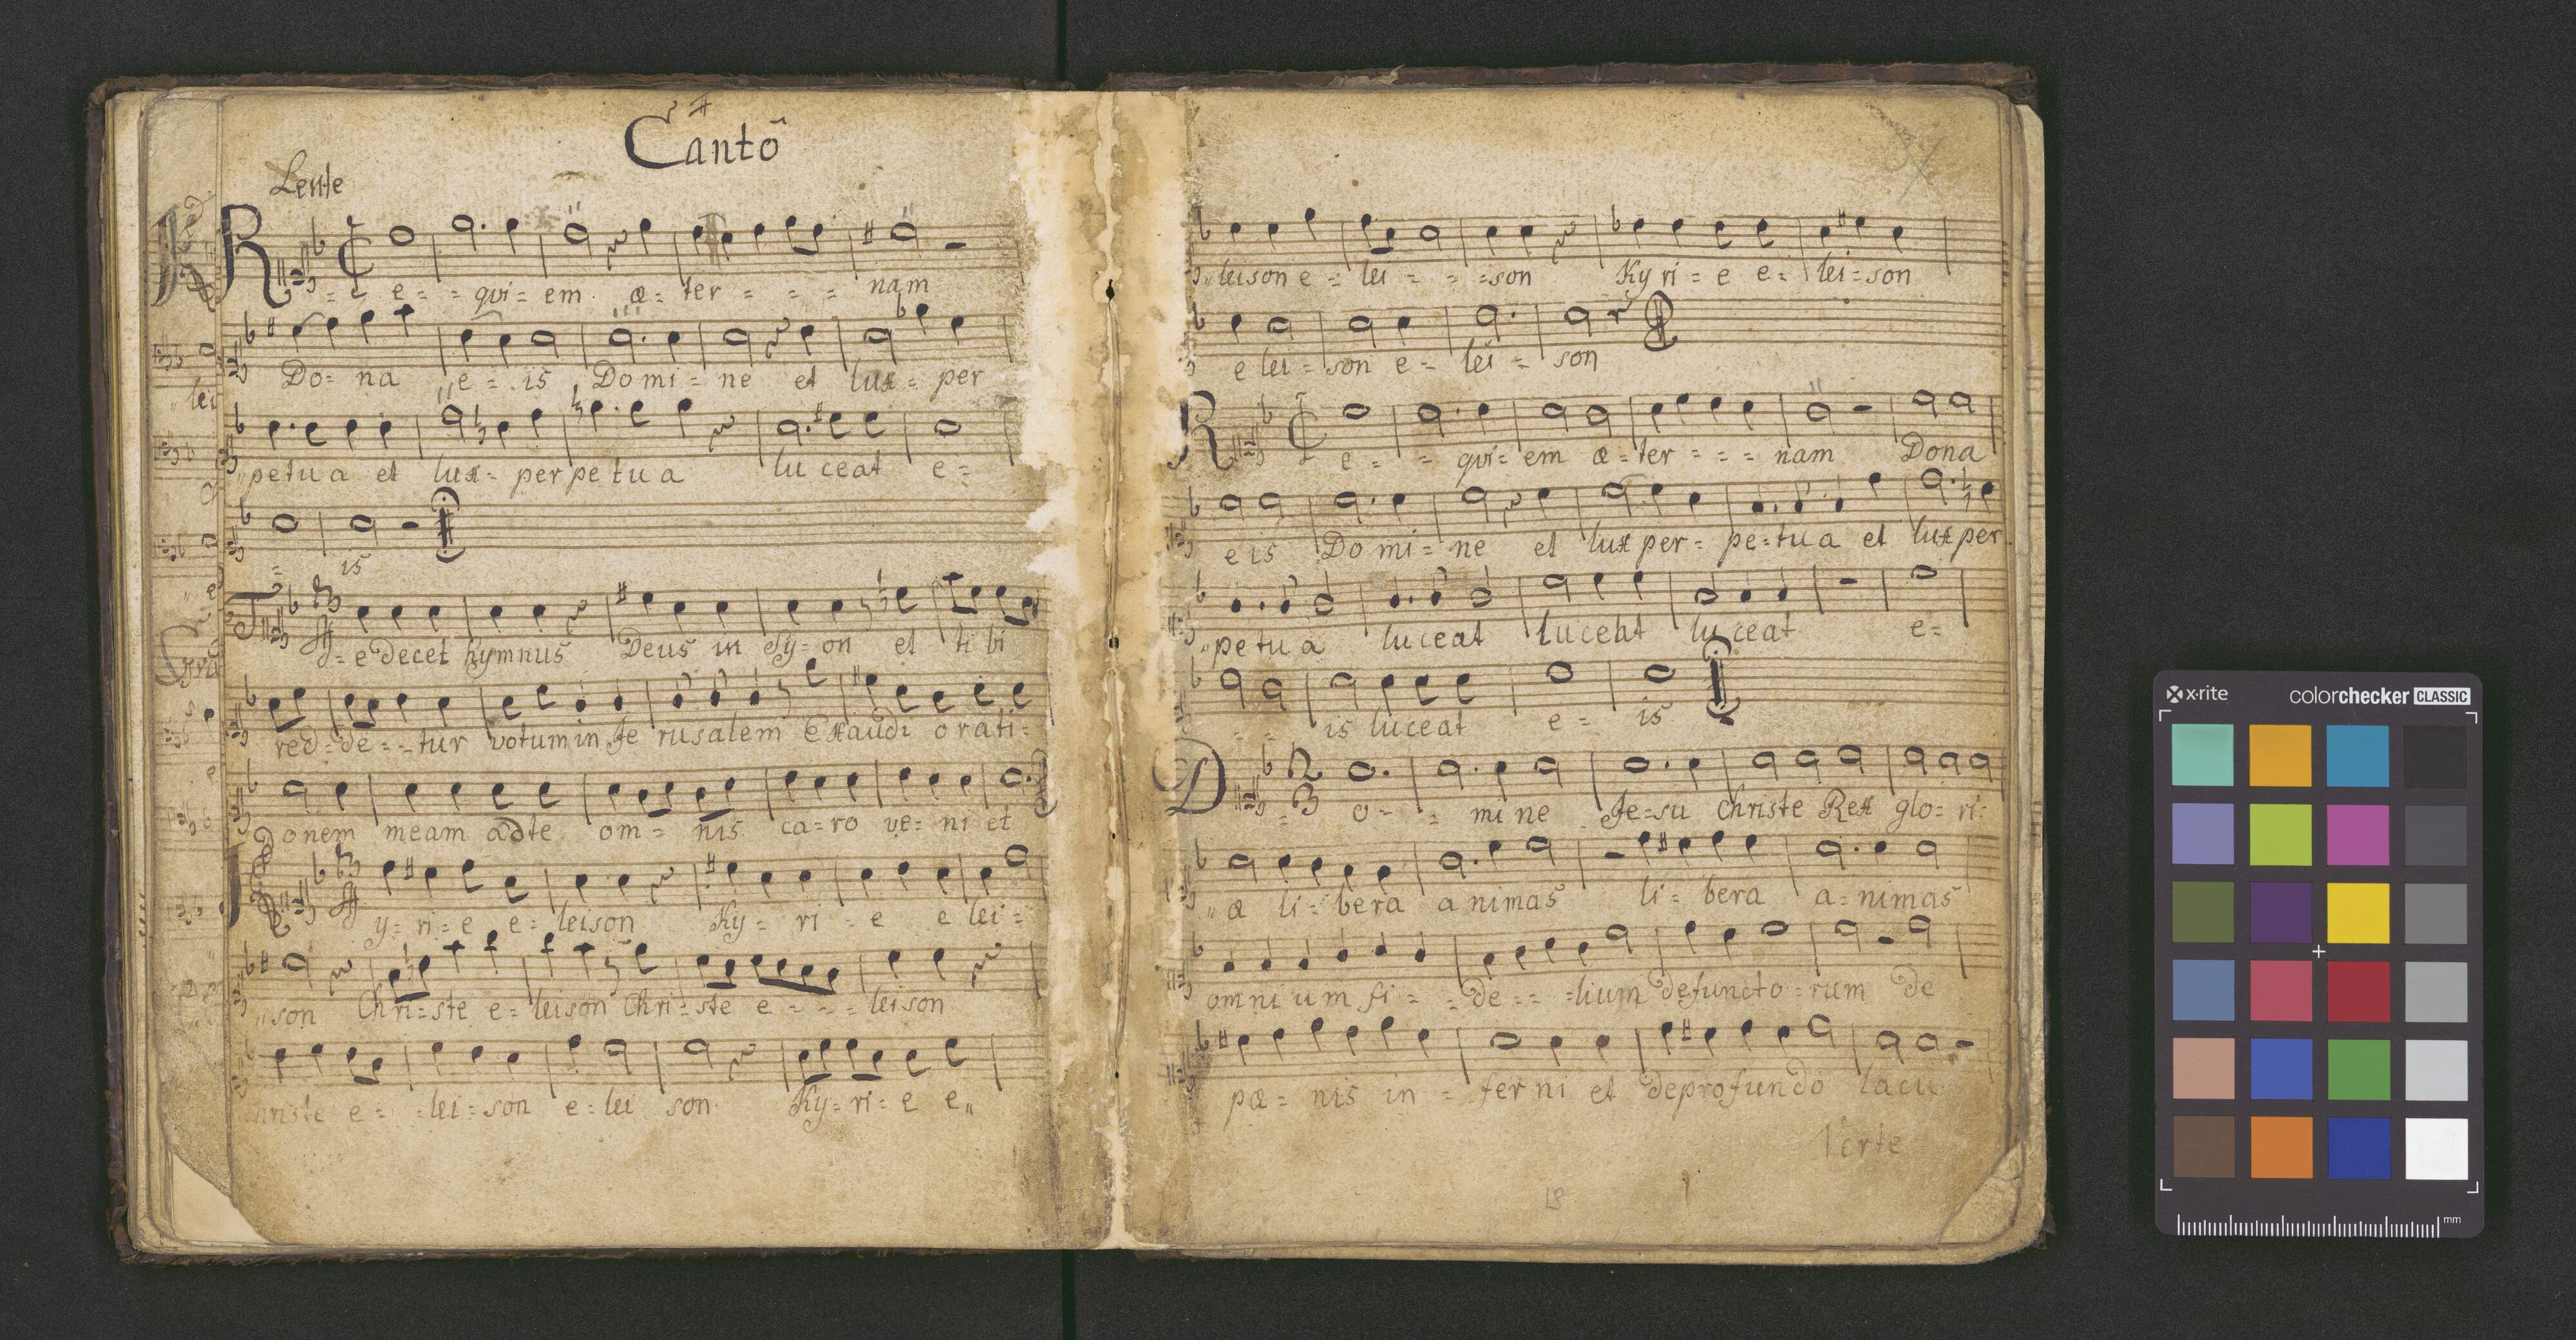 Cantô
Lente
R e = = qvi = em æ = ter = = = nam
Do = na e = is Domi = ne et lux = per
petua et lux = perpetua luceat e =
= is
T = e decet hymnus Deus in Sy = on et tibi
red = de = = tur votum in Je rusalem Exaudi orati =
onem meam adte om = nis ca = ro ve = ni et
y = ri = e e = leison Ky = ri = e e lei =
son Chri = ste e = leison Chri = ste e = = = leison
hriste e = = lei = son e = lei son Ky = ri = e e
leison e = lei = = = son Kyri = e e = lei = son
e lei = son e = lei = son
R = e = = qvi = em æ = ter = = = nam Dona
e is Domi = ne et lux per = pe = tua et lux per
petua luceat luceat luceat e =
= = is luceat e = is
D = o = = mine Je = su Christe Rex glo = ri =
æ li = bera animas li = bera a = nimas
omnium fi = = de = = = lium defuncto = rum de
pæ = nis in = ferni et deprofundo lacu
Verte
18
lei
x·rite
colorchecker CLASSIC
mm